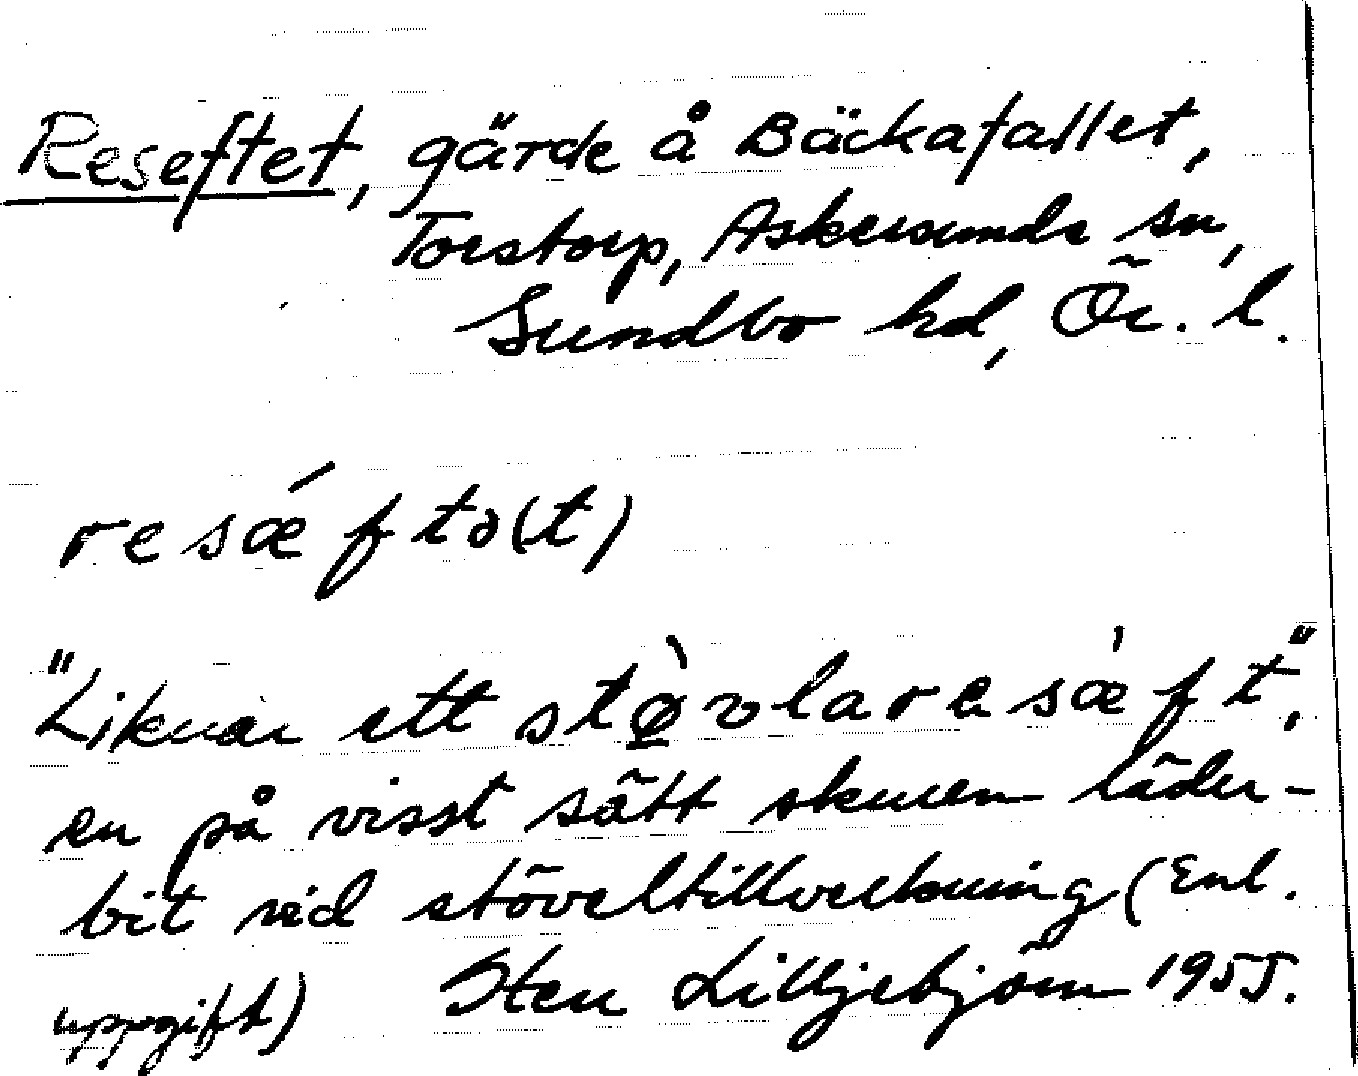 Reseftet, gärde å Bäckafallet,
Torstorp, Askersunds sn,
Sundbo hd, Ör. l.
resǽftə(t)
"Liknar ett stø̀vlaresǽft",
en på visst sätt skuren läder-
bit vid stöveltillverkning (Enl.
uppgift) Sten Lilljebjörn 1955.